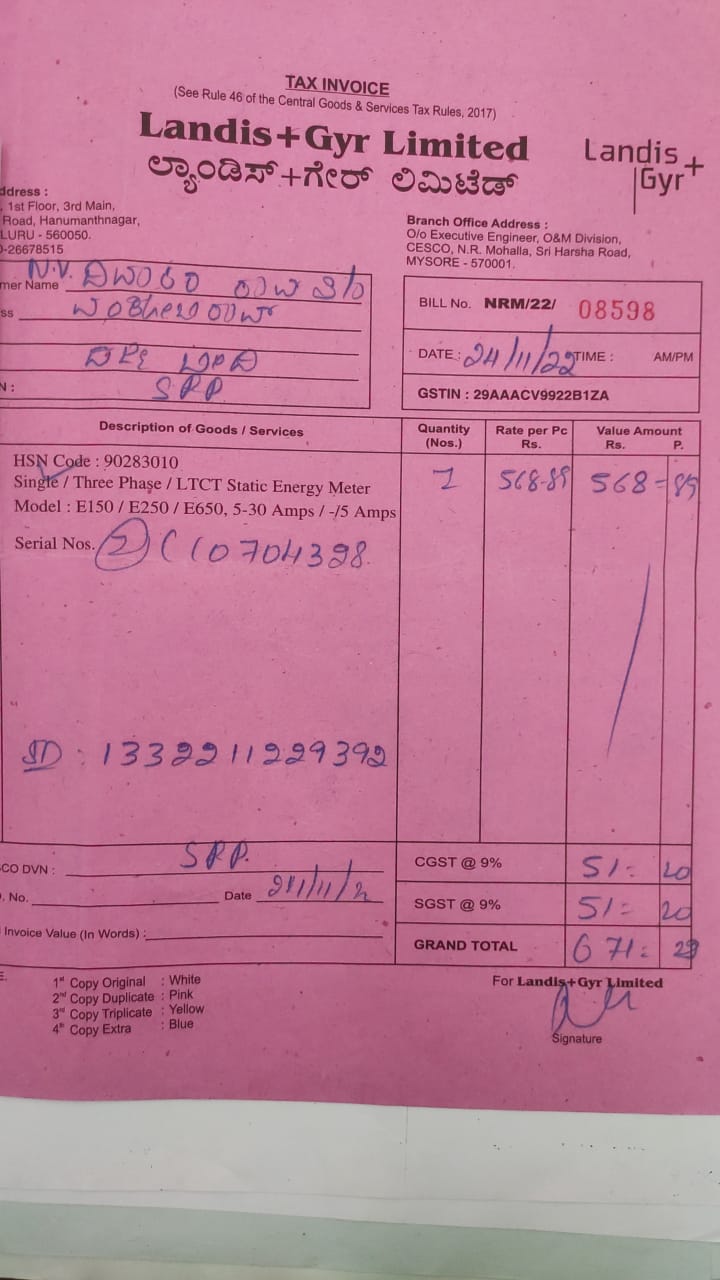 TAX INVOICE
(See Rule 46 of the Central Goods & Services Tax Rules, 2017)
Landis+Gyr Limited
ಲ್ಯಾಂಡಿಸ್+ಗೇರ್ ಲಿಮಿಟೆಡ್
Landis+
Gyr
ddress :
, 1st Floor, 3rd Main,
Road, Hanumanthnagar,
LURU - 560050.
0-26678515
Branch Office Address :
O/o Executive Engineer, O&M Division,
CESCO, N.R. Mohalla, Sri Harsha Road,
MYSORE - 570001.
mer Name N.V.
ss
N :
SRP
BILL No. NRM/22/ 08598
DATE : 24/11/22 TIME : AM/PM
GSTIN : 29AAACV9922B1ZA
Description of Goods / Services Quantity (Nos.) Rate per Pc Rs. Value Amount Rs. P.
HSN Code : 90283010
Single / Three Phase / LTCT Static Energy Meter 1 568-89 568=89
Model : E150 / E250 / E650, 5-30 Amps / -/5 Amps
Serial Nos. 10704398
ID : 1332211229392
CO DVN : SRP.
. No. Date
Invoice Value (In Words) :
CGST @ 9% 51= 20
SGST @ 9% 51= 20
GRAND TOTAL 671= 29
E.
1st Copy Original : White
2nd Copy Duplicate : Pink
3rd Copy Triplicate : Yellow
4th Copy Extra : Blue
For Landis+Gyr Limited
Signature